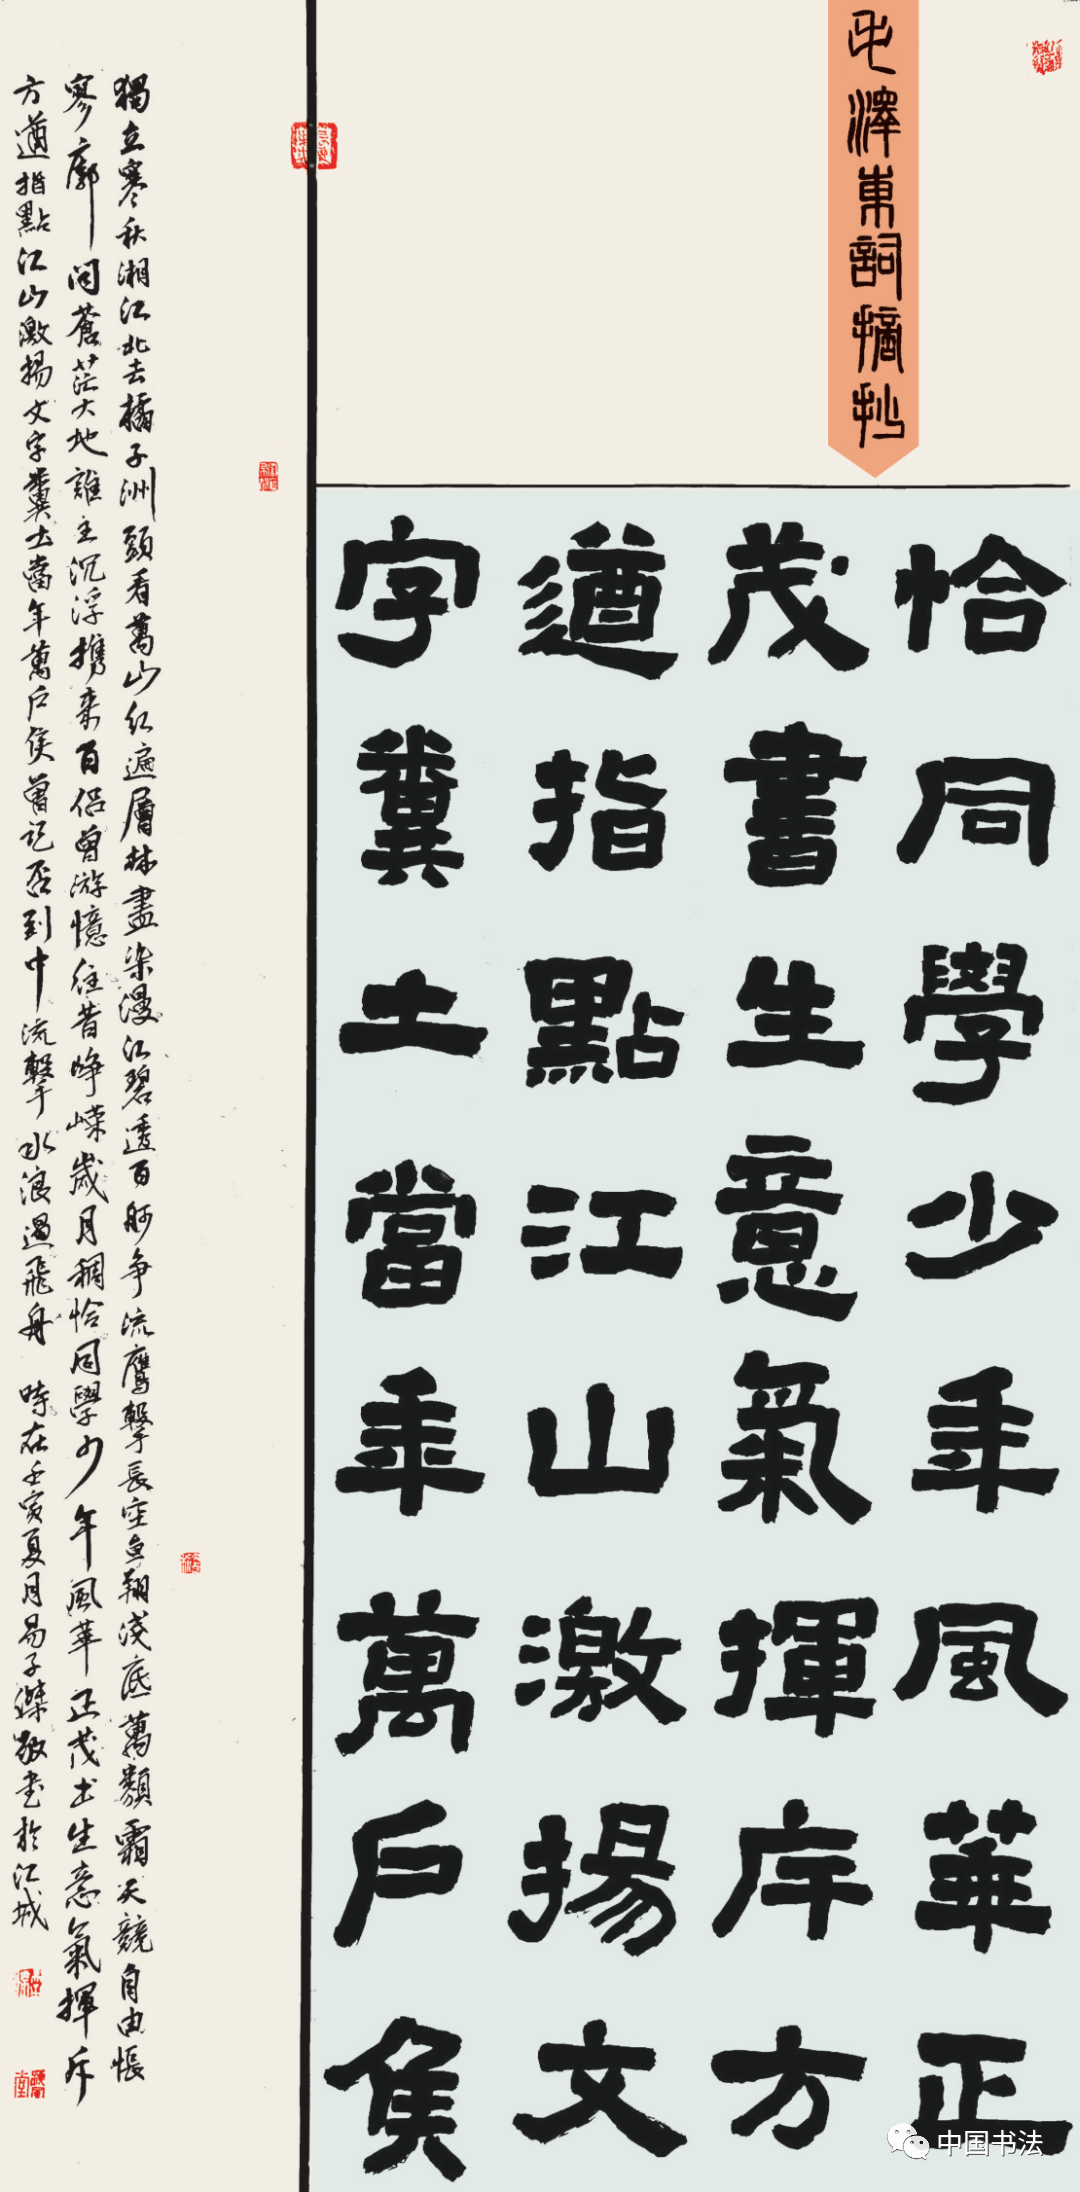 毛澤東詞摘抄
恰同學少年風華正
茂書生意氣揮斥方
遒指點江山激揚文
字糞土當年萬戶侯
獨立寒秋湘江北去橘子洲頭看萬山紅遍層林盡染漫江碧透百舸争流鷹擊長空魚翔淺底萬類霜天競自由悵
寥廓問蒼茫大地誰主沉浮携來百侣曾游憶往昔峥嶸歲月稠恰同學少年風華正茂书生意氣揮斥
方遒指點江山激揚文字糞土當年萬戶侯曾記否到中流擊水浪遏飛舟 時在壬寅夏月易子傑敬书於江城
中国书法